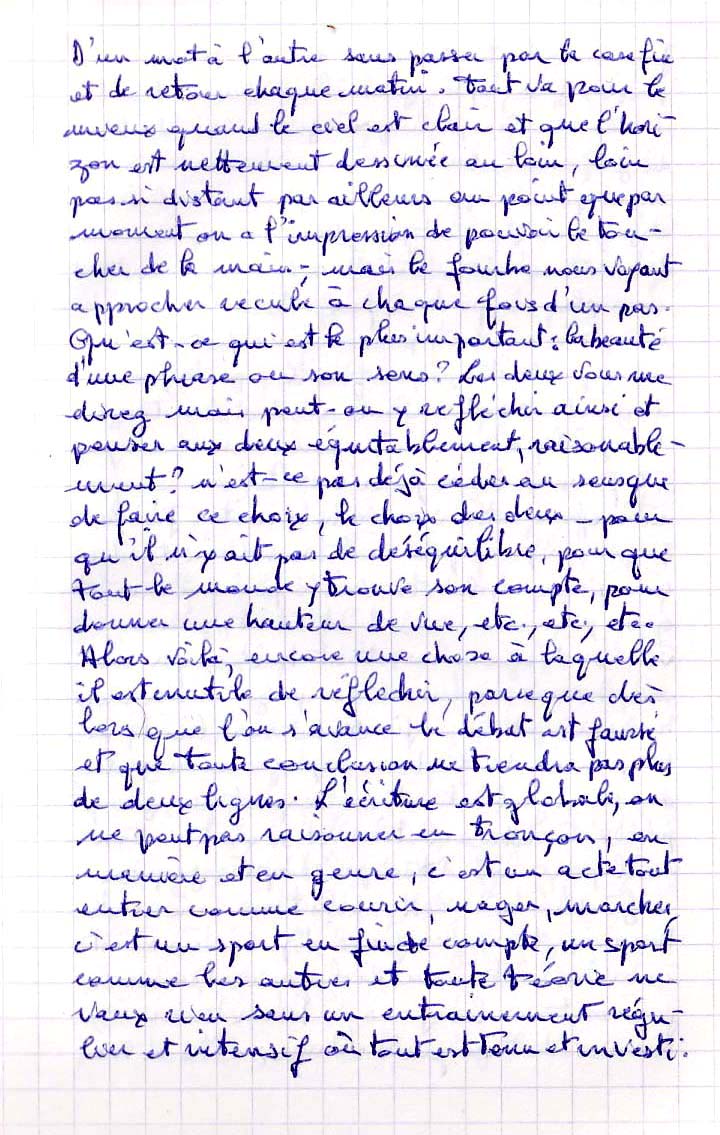 D'un mot à l'autre sans passer par la case fin
et de retour chaque matin. Tout va pour le
mieux quand le ciel est clair et que l'hori-
zon est nettement dessinée au loin, loin
pas si distant par ailleurs au point que par
moment on a l'impression de pouvoir le tou-
cher de la main ; mais le fourbe nous voyant
approcher recule à chaque fois d'un pas.
Qu'est-ce qui est le plus important : la beauté
d'une phrase ou son sens ? Les deux vous me
direz mais peut-on y réfléchir ainsi et
penser aux deux équitablement, raisonable-
ment ? n'est-ce pas déjà céder au sens que
de faire ce choix, le choix des deux - pour
qu'il n'y ait pas de deséquilibre, pour que
tout le monde y trouve son compte, pour
donner une hauteur de vue, etc., etc., etc.
Alors voilà, encore une chose à laquelle
il est inutile de réflechir, parce que dès
lors que l'on s'avance le débat est faussé
et que toute conclusion ne tiendra pas plus
de deux lignes. L'écriture est globale, on
ne peut pas raisonner en tronçon, en
manière et en genre, c'est un acte tout
entier comme courir, nager, marcher,
c'est un sport en fin de compte, un sport
comme les autres et toute téorie ne
vaux rien sans un entrainement régu-
lier et intensif où tout est tenu et investi.